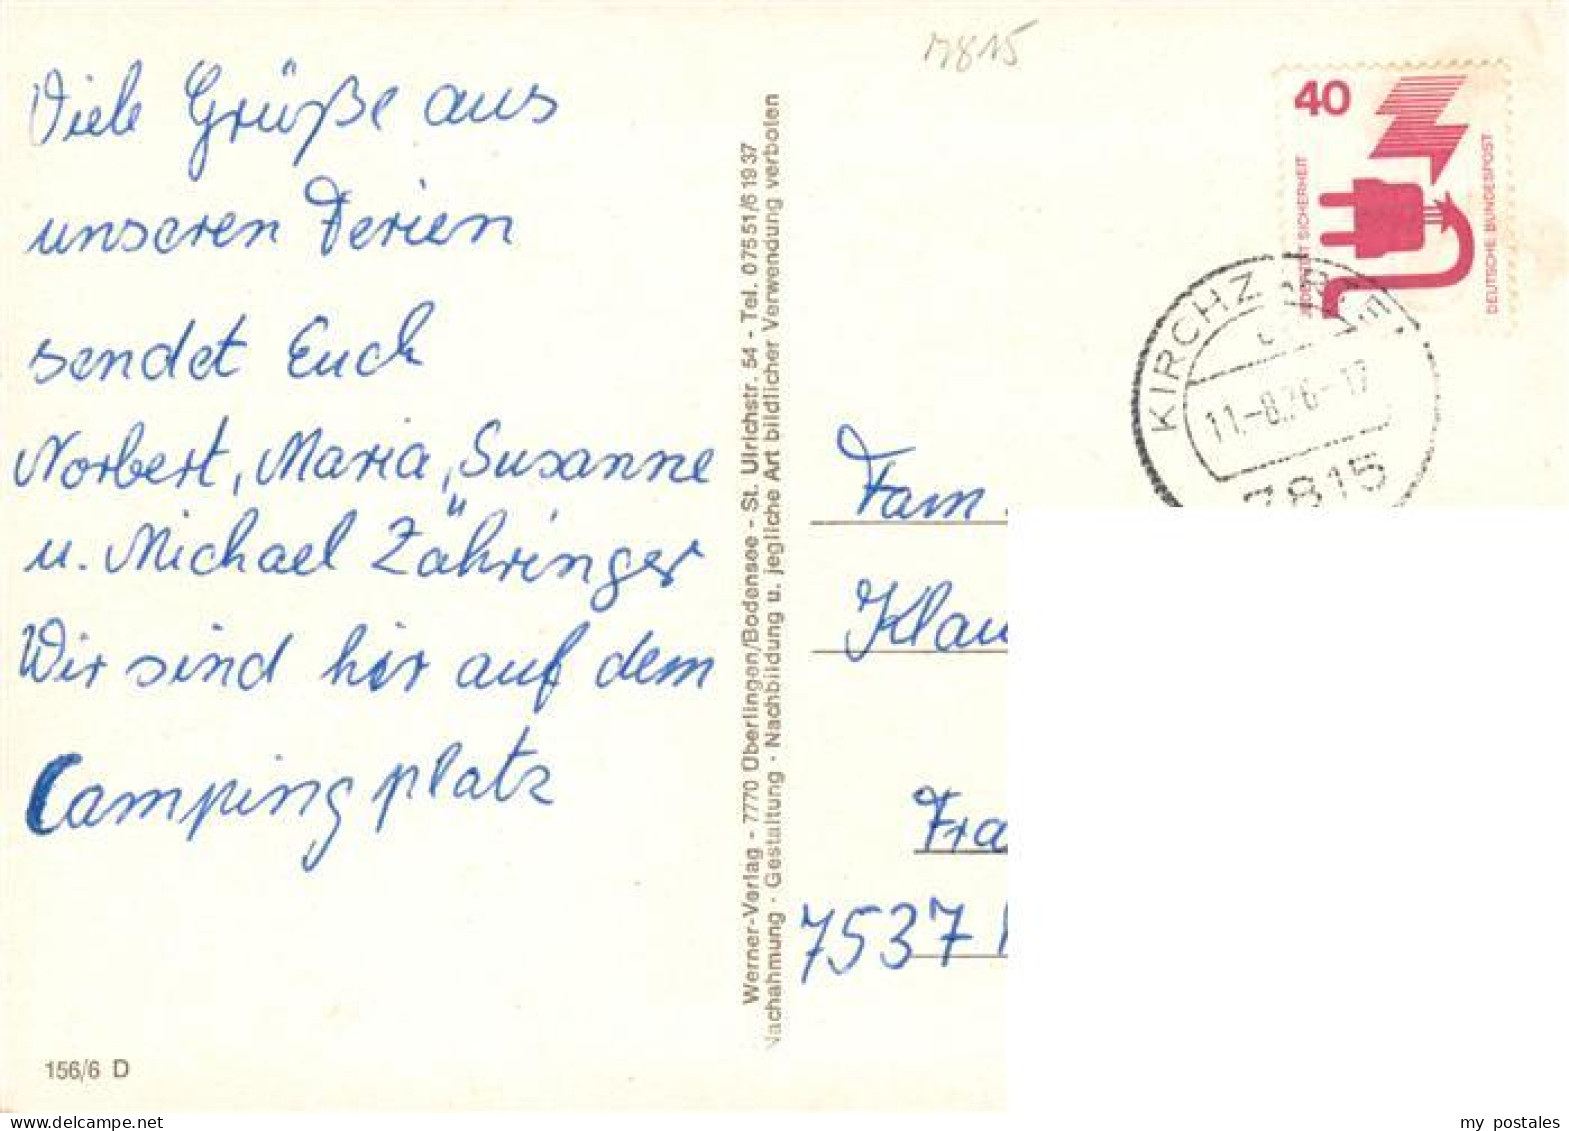 Viele Grüße aus
unseren Ferien
sendet Euch
Norbert, Maria, Susanne
u. Michael Zähringer
Wir sind hir auf dem
Campingplatz
156/6 D
Werner-Verlag - 7770 Überlingen/Bodensee - St. Ulrichstr. 54 - Tel. 07551/61937
Nachahmung - Gestaltung - Nachbildung u. jegliche Art bildlicher Verwendung verboten
7815
40
JEDERZEIT SICHERHEIT
DEUTSCHE BUNDESPOST
KIRCHZARTE
11.-8.76-17
7815
Fam
Klau
Fra
7537
my postales